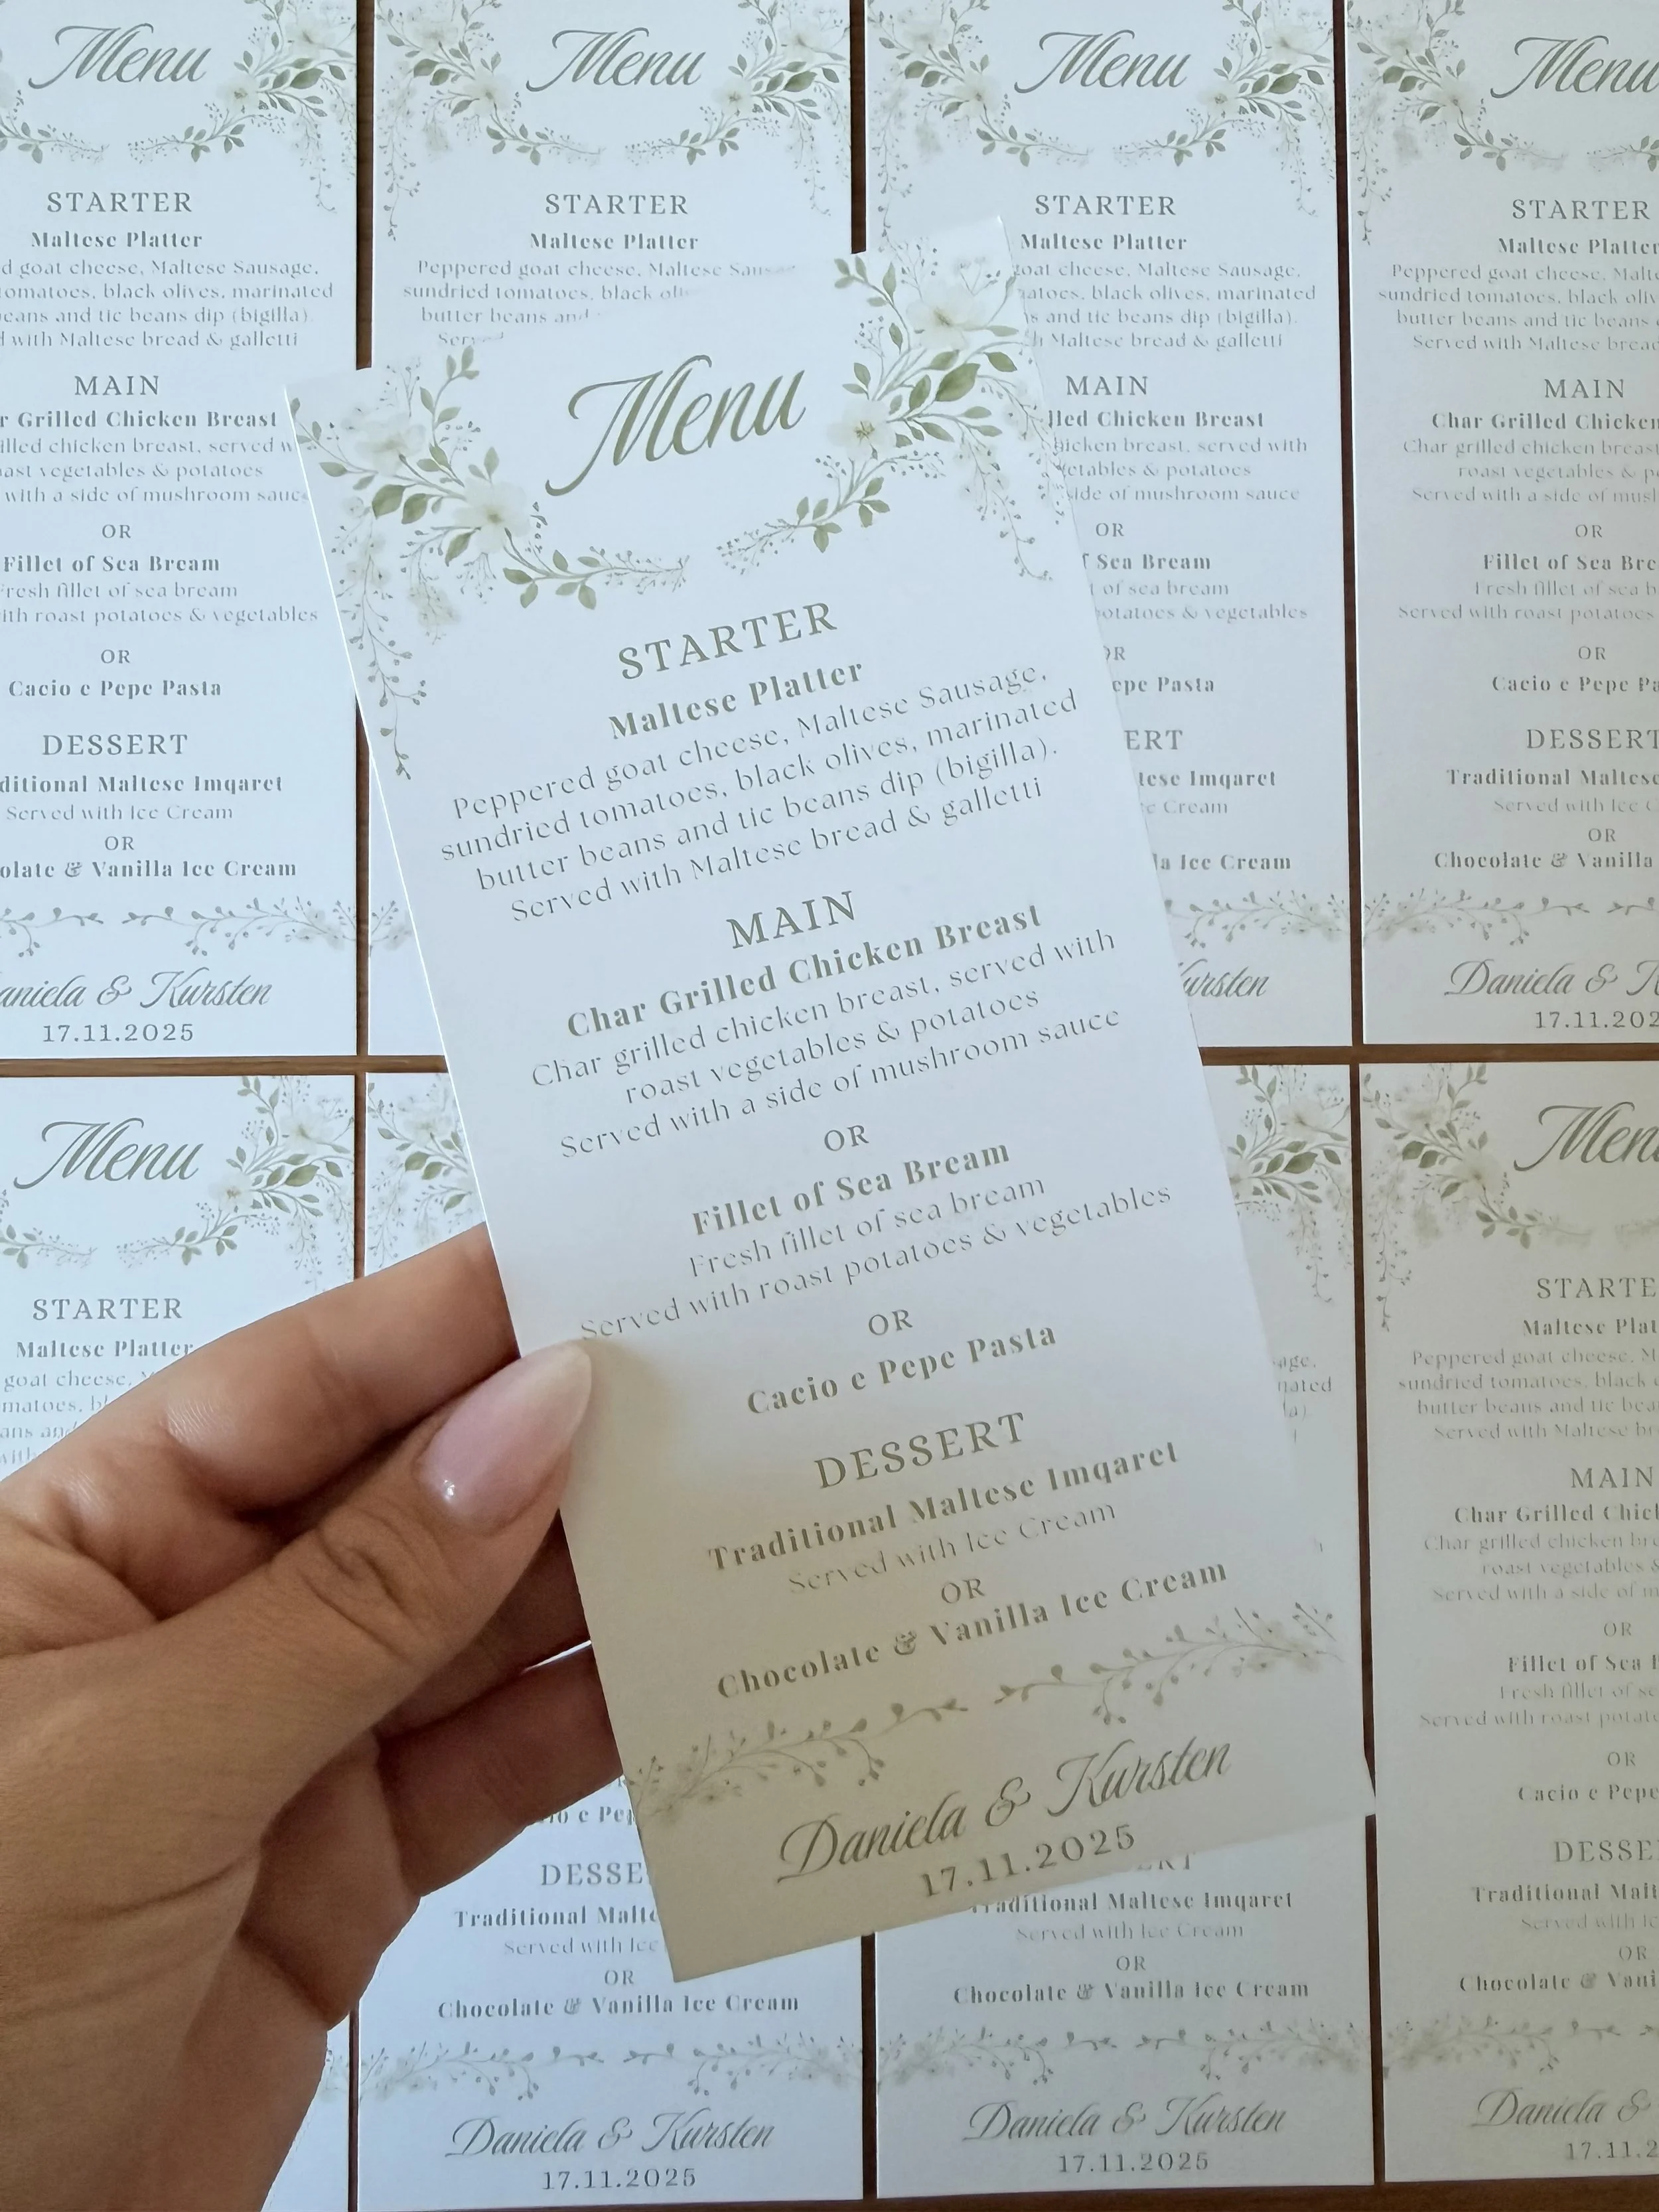 Menu
STARTER
Maltese Platter
Peppered goat cheese, Maltese Sausage,
sundried tomatoes, black olives, marinated
butter beans and tic beans dip (bigilla).
Served with Maltese bread & galletti
MAIN
Char Grilled Chicken Breast
Char grilled chicken breast, served with
roast vegetables & potatoes
Served with a side of mushroom sauce
OR
Fillet of Sea Bream
Fresh fillet of sea bream
Served with roast potatoes & vegetables
OR
Cacio e Pepe Pasta
DESSERT
Traditional Maltese Imqaret
Served with Ice Cream
OR
Chocolate & Vanilla Ice Cream
Daniela & Kursten
17.11.2025